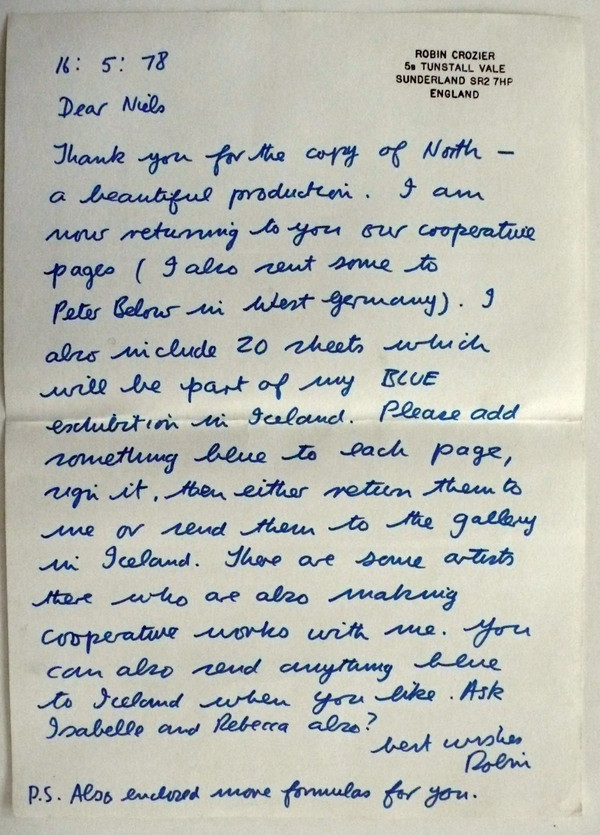 ROBIN CROZIER
5B TUNSTALL VALE
SUNDERLAND SR2 7HP
ENGLAND
16 : 5 : 78
Dear Niels
Thank you for the copy of North —
a beautiful production. I am
now returning to you our cooperative
pages ( I also sent some to
Peter Below in West Germany). I
also include 20 sheets which
will be part of my BLUE
exhibition in Iceland. Please add
something blue to each page,
sign it, then either return them to
me or send them to the gallery
in Iceland. There are some artists
there who are also making
cooperative works with me. You
can also send anything blue
to Iceland when you like. Ask
Isabelle and Rebecca also?
best wishes
Robin
P.S. Also enclosed more formulas for you.